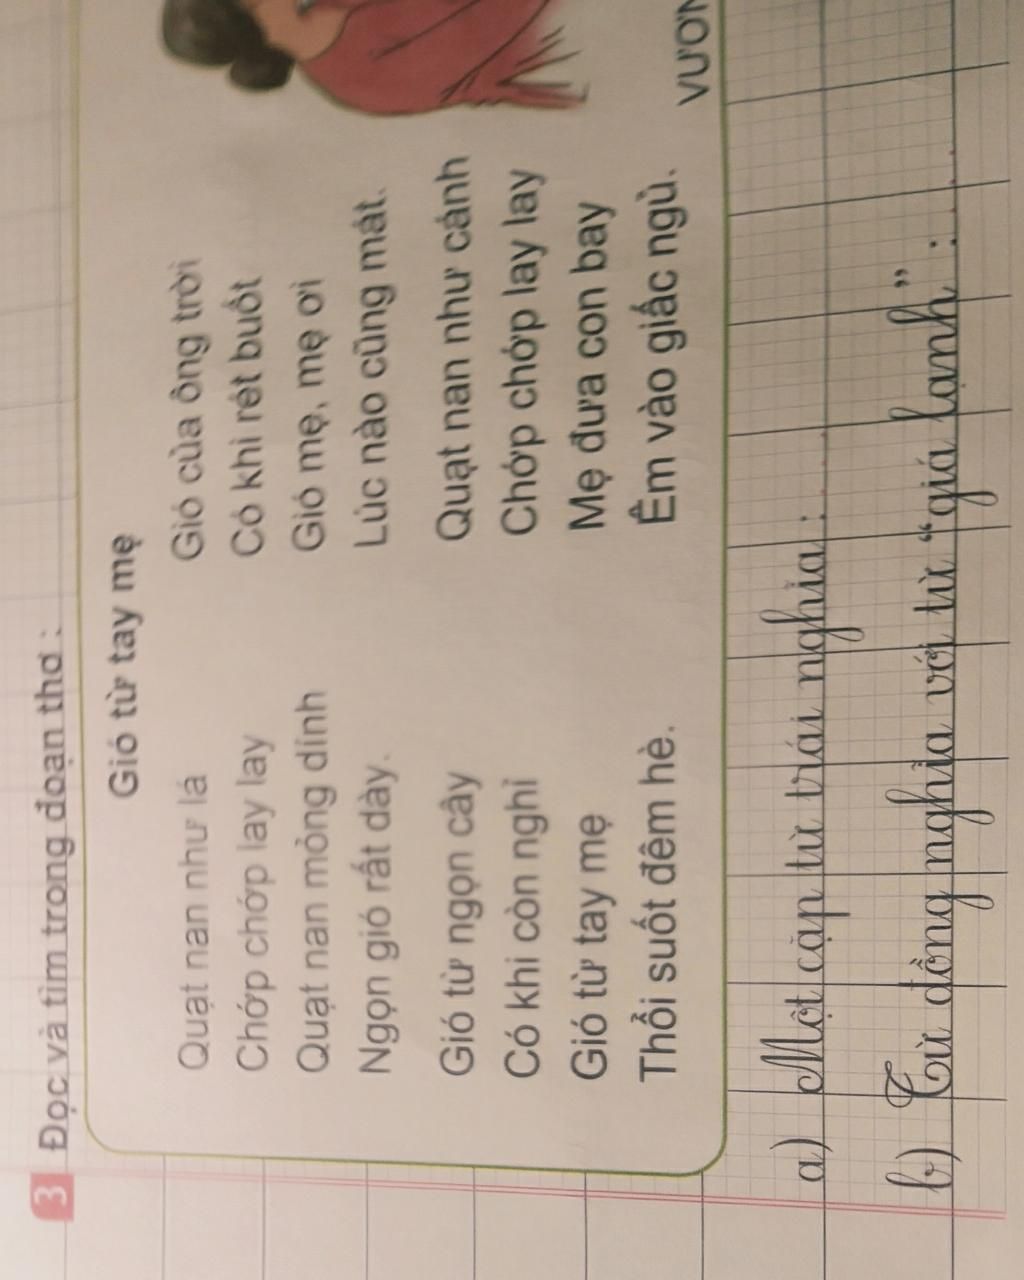 3 Đọc và tìm trong đoạn thơ :
Gió từ tay mẹ
Quạt nan như lá
Chớp chớp lay lay
Quạt nan mỏng dính
Ngọn gió rất dày.
Gió từ ngọn cây
Có khi còn nghỉ
Gió từ tay mẹ
Thổi suốt đêm hè.
Gió của ông trời
Có khi rét buốt
Gió mẹ, mẹ ơi
Lúc nào cũng mát.
Quạt nan như cánh
Chớp chớp lay lay
Mẹ đưa con bay
Êm vào giấc ngủ.
a) Một cặp từ trái nghĩa:
b) Từ đồng nghĩa với từ “giá lạnh”: